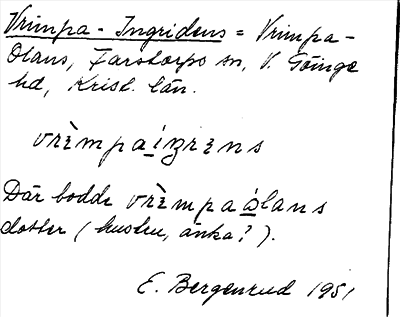 Vrimpa - Ingridens = Vrimpa-
Olans, Farstorps sn, V. Göinge
hd, Krist. län.
vrèmpaízrɛns
Där bodde vrèmpaólans
dotter (huslu, änka?).
E. Bergenrud 1951